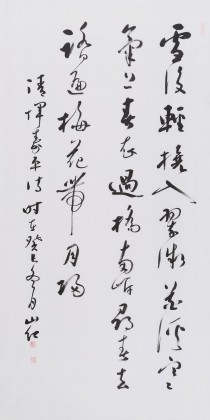 雪後輕橈入翠微花溪寒
氣上春衣過橋南岸尋春去
踏遍梅花帶月歸
清惲壽平詩 時在癸巳冬月 山